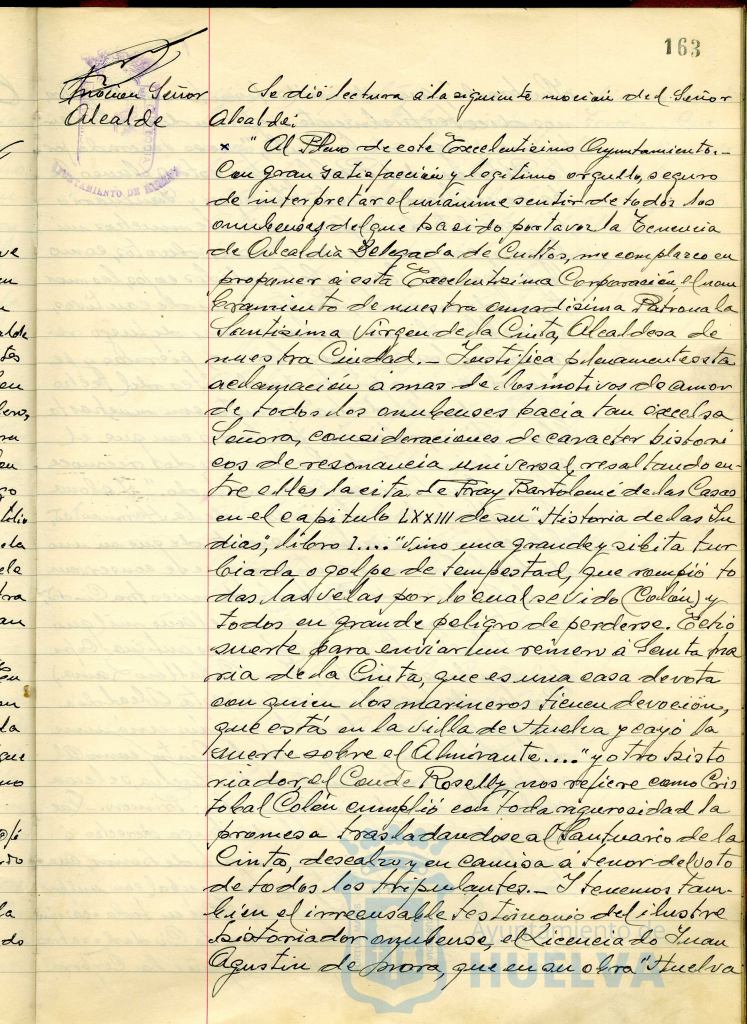 163
Moción Señor
Alcalde
AYUNTAMIENTO DE HUELVA
Se dió lectura a la siguiente moción del Señor
Alcalde:
× "Al Pleno de este Excelentísimo Ayuntamiento.-
Con gran satisfacción y legítimo orgullo, seguro
de interpretar el unánime sentir de todos los
onubenses del que ha sido portavoz la Tenencia
de Alcaldía Delegada de Cultos, me complazco en
proponer a esta Excelentísima Corporación el nom
bramiento de nuestra amadísima Patrona la
Santísima Virgen de la Cinta, Alcaldesa de
nuestra Ciudad.- Justifica plenamente esta
aclamación a mas de los motivos de amor
de todos los onubenses hacia tan excelsa
Señora, consideraciones de caracter históri
cos de resonancia universal, resaltando en-
tre ellos la cita de Fray Bartolomé de las Casas
en el capitulo LXXIII de su "Historia de las In
dias", libro I.... "Vino una grande y súbita tur
biada o golpe de tempestad, que rompió to
das las velas por lo cual se vido (Colón) y
todos en grande peligro de perderse. Echó
suerte para enviar un romero á Santa Ma
ria de la Cinta, que es una casa devota
con quien los marineros tienen devoción,
que está en la villa de Huelva y cayó la
suerte sobre el Almirante...." y otro histo
riador, el Conde Roselly, nos refiere como Cris
tobal Colón cumplió con toda rigurosidad la
promesa trasladandose al Santuario de la
Cinta, descalzo y en camisa a tenor del voto
de todos los tripulantes.- Y tenemos tam-
bién el irrecusable testimonio del ilustre
historiador onubense, el Licenciado Juan
Agustin de Mora, que en su obra "Huelva
Ayuntamiento de
HUELVA